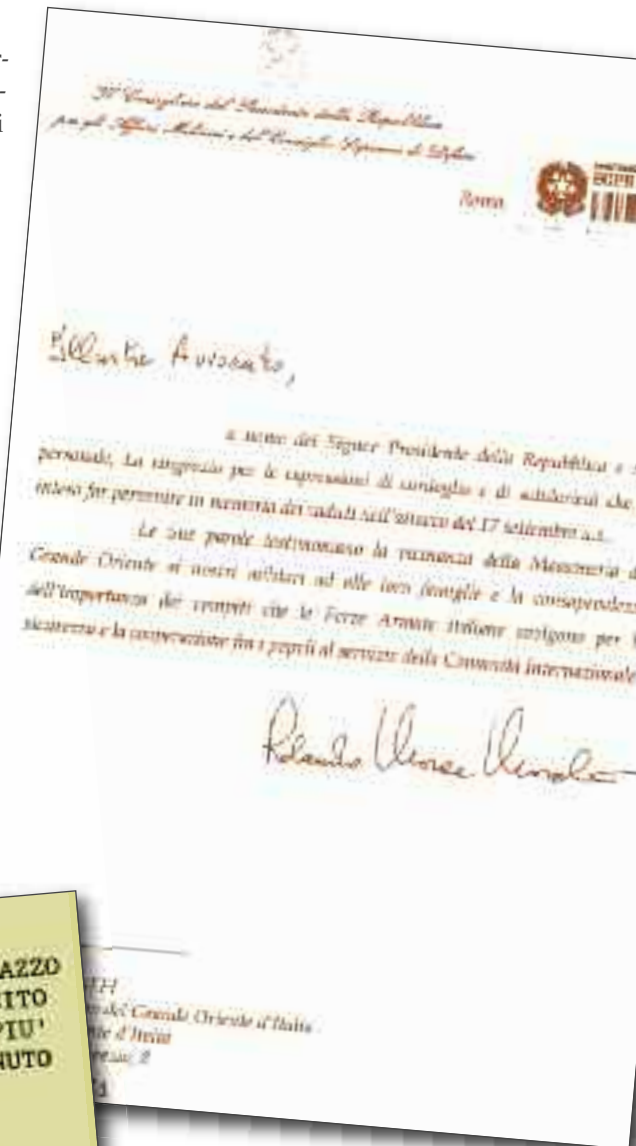 i
Il Consigliere del Presidente della Repubblica
per gli Affari Militari e del Consiglio Supremo di Difesa
Roma
Illustre Avvocato,
a nome del Signor Presidente della Repubblica e
personale, La ringrazio per le espressioni di cordoglio e di solidarietà che
inteso far pervenire in memoria dei caduti nell'attacco del 17 settembre u.s..
Le sue parole testimoniano la vicinanza della Massoneria
Grande Oriente ai nostri militari ed alle loro famiglie e la
dell'importanza dei compiti che le Forze Armate Italiane svolgono per
sicurezza e la cooperazione fra i popoli al servizio della Comunità Internazionale
del Grande Oriente d'Italia
d'Italia
2
AZZO
ITO
PIU'
NUTO